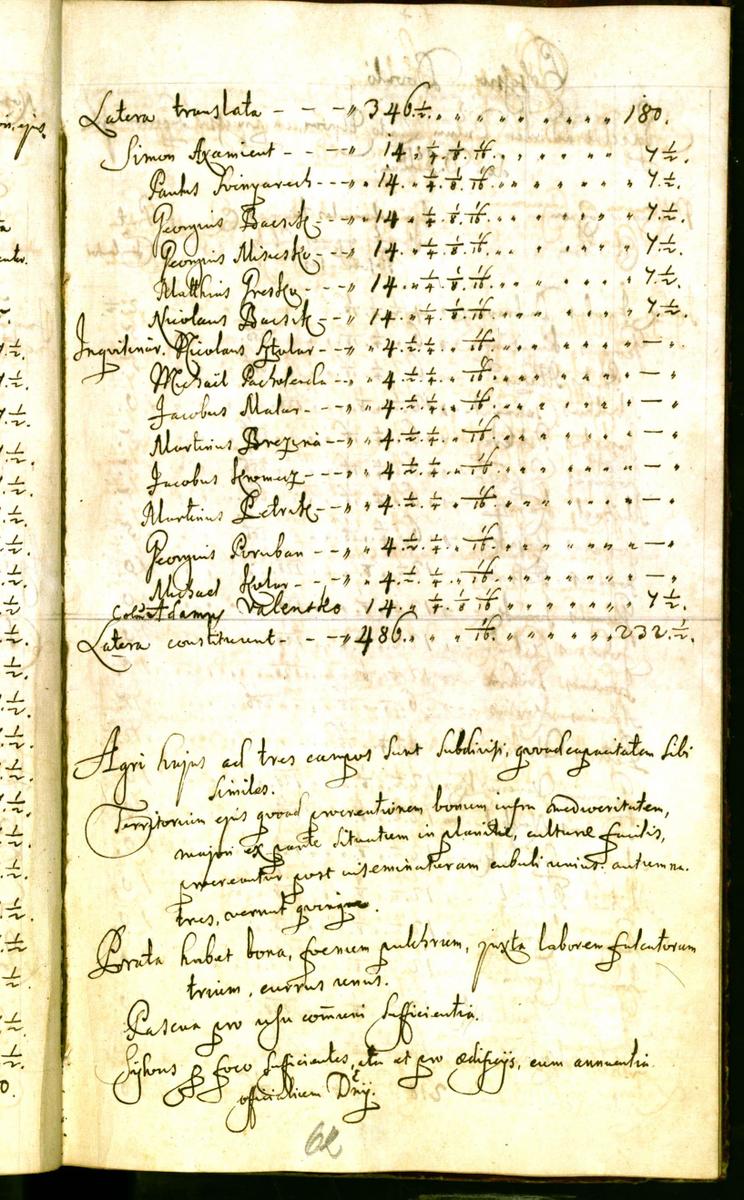 Latera translata - - - " 346. 1/2. " " " " " " " " " 180.
Simon Axamient - - - " 14 " 1/4. 1/8. 1/16. " " " " " " 7 1/2.
Paulus - - - " 14. " 1/4. 1/8. 1/16. " " " " " " 7. 1/2.
Georgius Bacsik - - - " 14 " 1/4. 1/8. 1/16. " " " " " " 7. 1/2.
Georgius Misesko - - - " 14 " 1/4. 1/8. 1/16. " " " " " " 7. 1/2.
Matthias Gresko - - - " 14 " 1/4. 1/8. 1/16. " " " " " " 7. 1/2.
Nicolaus Bacsik - - - " 14. " 1/4. 1/8. 1/16. " " " " " " 7. 1/2.
Inquilinar. Nicolaus - - - " 4. 1/2. 1/4. " 1/16. " " " " " " — "
Michaël Pacholenda - - - " 4. 1/2. 1/4. " 1/16. " " " " " " — "
Jacobus Malar - - - " 4. 1/2. 1/4. " 1/16. " " " " " " — "
Martinus Brezina - - - " 4 1/2. 1/4. " 1/16. " " " " " " — "
Jacobus - - - " 4 1/2. 1/4. " 1/16. " " " " " " — "
Martinus Petrik - - - " 4. 1/2. 1/4. " 1/16. " " " " " " — "
Georgius Poruban - - - " 4. 1/2. 1/4. " 1/16. " " " " " " — "
Michael Kolar - - - " 4. 1/2. 1/4. " 1/16. " " " " " " — "
Adamy Valentko 14. " 1/4. 1/8 1/16. " " " " " " 7 1/2.
Latera constituunt - - - " 486. " " " 1/16. " " " " " " 232. 1/2.
Agri hujus ad tres campos sunt subdivisi, quoad capacitatem sibi
similes.
Territorium ejus quoad procreationem bonum infra mediocritatem,
majori ex parte situatum in planitie, culturæ facilis,
procreantur post inseminaturam cubuli unius autumna.
tres, vernat quinque.
Prata habet bona, foenum pulchrum, juxta laborem falcatorum
trium, currus unus.
Pascua pro usu com̄uni sufficientia.
Sylvas p foco sufficientes, et pro ædificÿs, cum annuentia
officialium Dn̄ÿ.
62